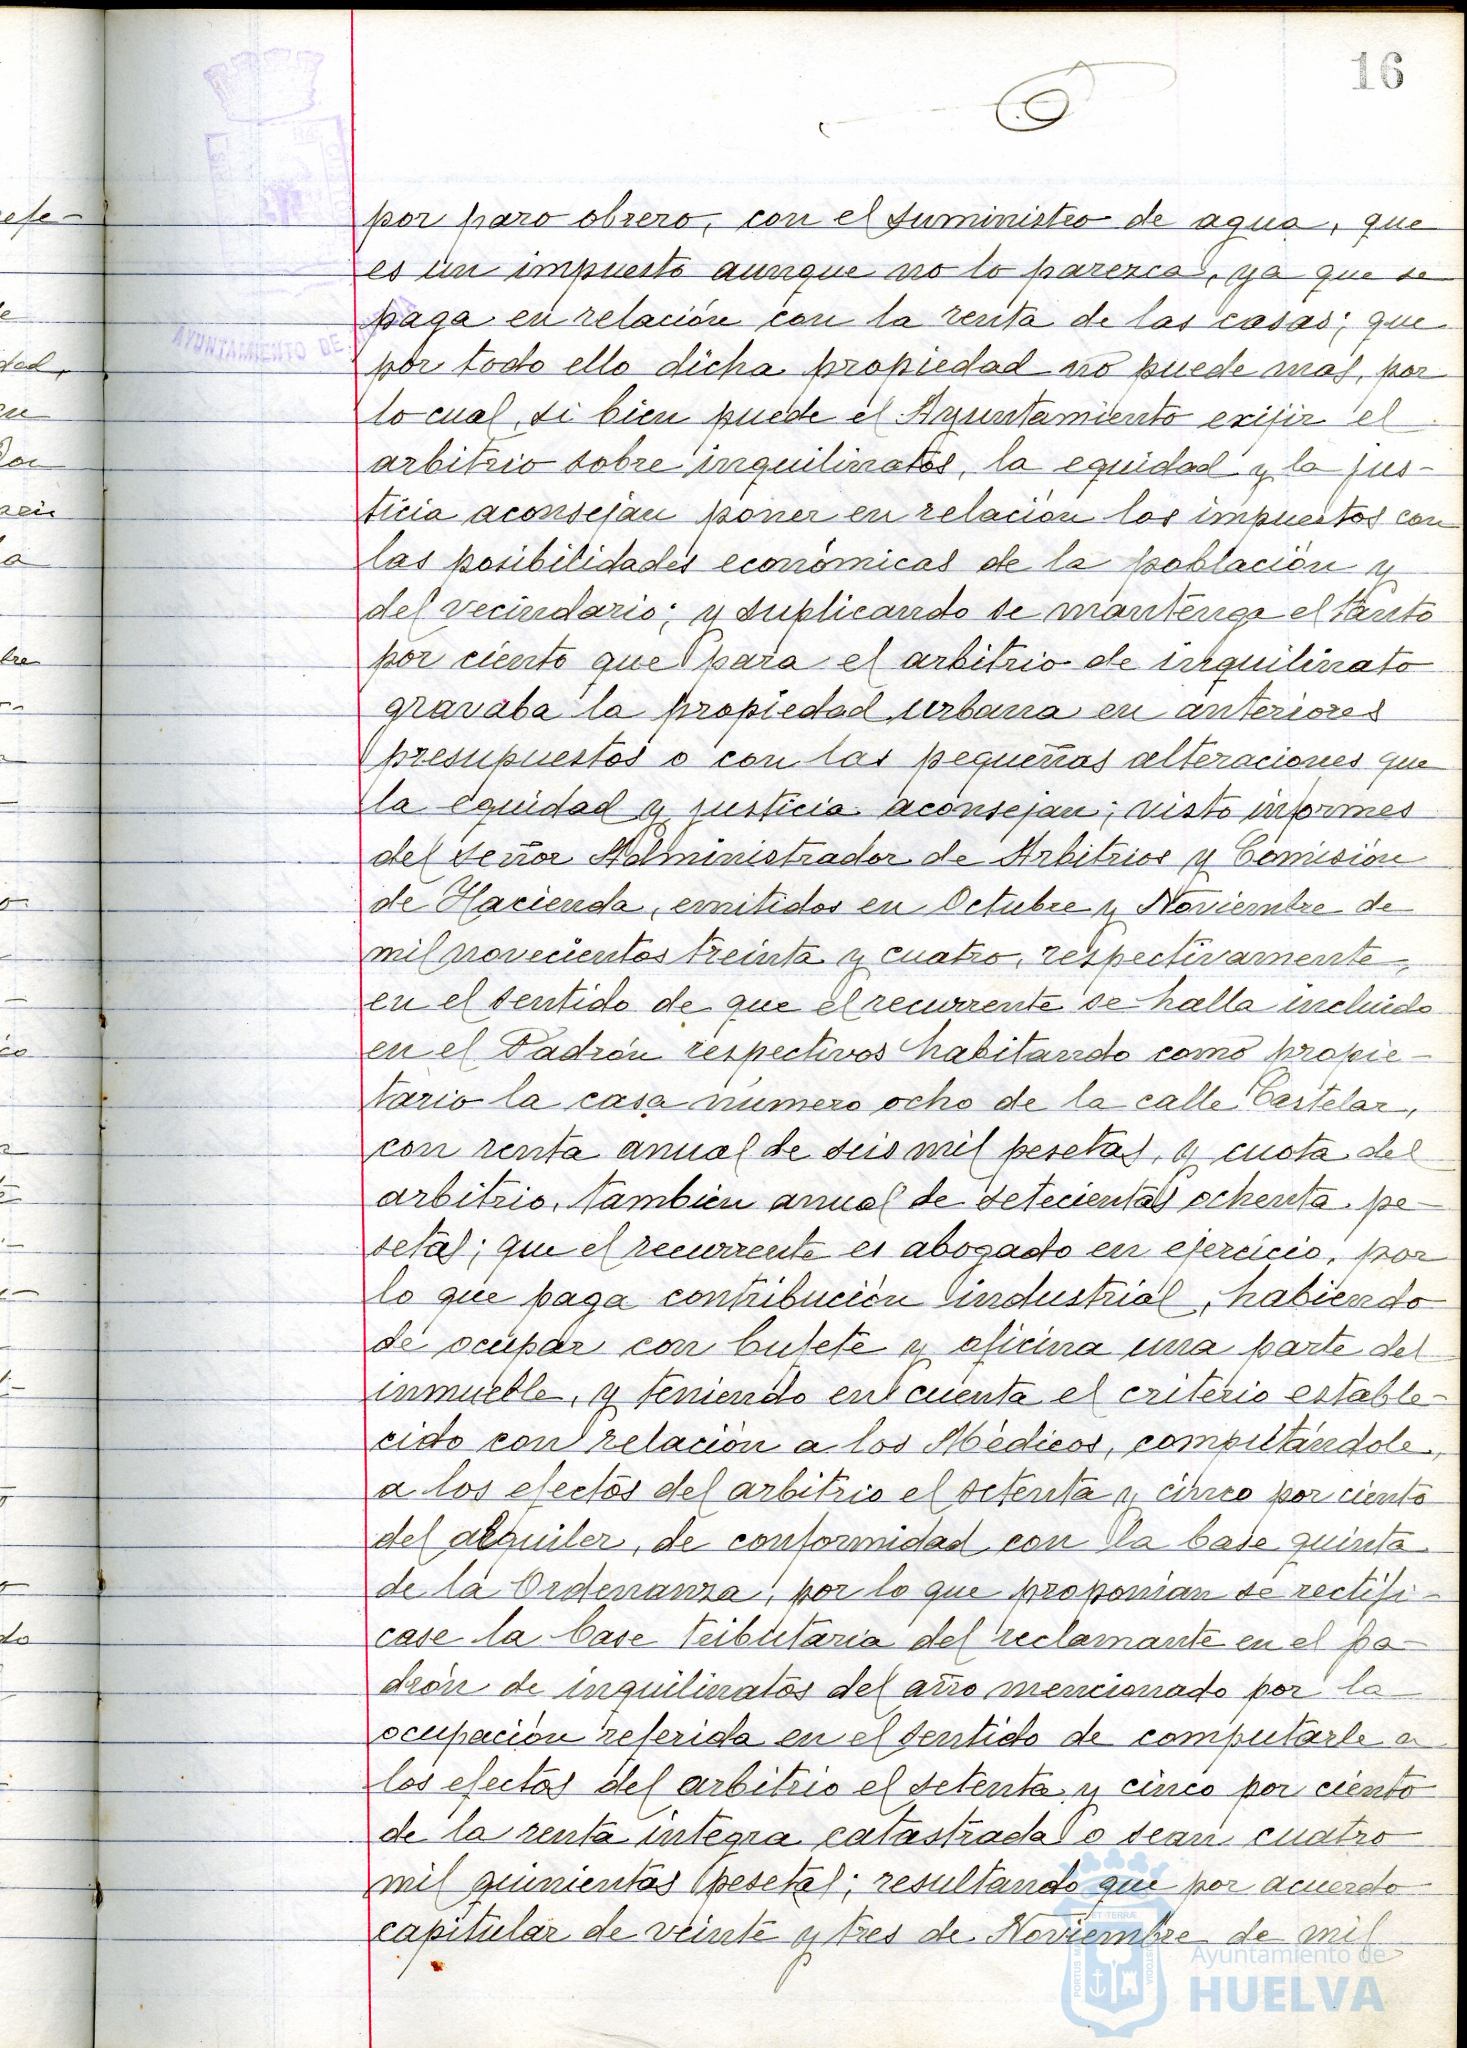 16
por paro obrero, con el suministro de agua, que
es un impuesto aunque no lo parezca, ya que se
paga en relación con la renta de las casas; que
por todo ello dicha propiedad no puede mas, por
lo cual, si bien puede el Ayuntamiento exijir el
arbitrio sobre inquilinatos, la equidad y la jus-
ticia aconsejan poner en relación los impuestos con
las posibilidades económicas de la población y
del vecindario; y suplicando se mantenga el tanto
por ciento que para el arbitrio de inquilinato
gravaba la propiedad urbana en anteriores
presupuestos o con las pequeñas alteraciones que
la equidad y justicia aconsejan; visto informes
del señor Administrador de Arbitrios y Comisión
de Hacienda, emitidos en Octubre y Noviembre de
mil novecientos treinta y cuatro, respectivamente,
en el sentido de que el recurrente se halla incluido
en el Padrón respectivos habitando como propie-
tario la casa número ocho de la calle Castelar,
con renta anual de seis mil pesetas, y cuota del
arbitrio, tambien anual de setecientas ochenta pe-
setas; que el recurrente es abogado en ejercicio, por
lo que paga contribución industrial, habiendo
de ocupar con bufete y oficina una parte del
inmueble, y teniendo en cuenta el criterio estable-
cido con relación a los Médicos, computándole,
a los efectos del arbitrio el setenta y cinco por ciento
del alquiler, de conformidad con la base quinta
de la Ordenanza; por lo que proponian se rectifi-
case la base tributaria del reclamante en el pa-
drón de inquilinatos del año mencionado por la
ocupación referida en el sentido de computarle a
los efectos del arbitrio el setenta y cinco por ciento
de la renta integra catastrada o sean cuatro
mil quinientas pesetas; resultando que por acuerdo
capitular de veinte y tres de Noviembre de mil
AYUNTAMIENTO DE
Ayuntamiento de
HUELVA